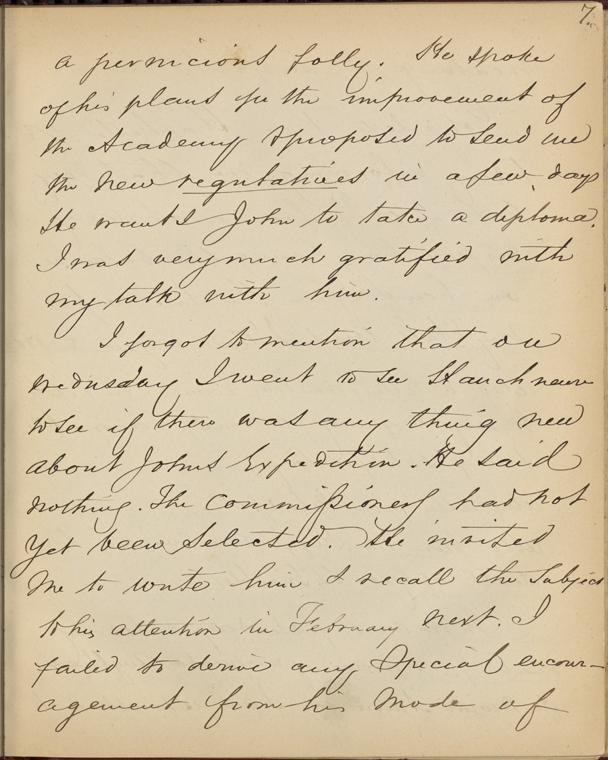 7.
a pernicious folly. He spoke
of his plans for the improvement of
the Academy & proposed to send me
the new regulatives in a few days
He wants John to take a diploma.
I was very much gratified with
my talk with him.
I forgot to mention that on
Wednesday I went to see Hauchneur
to see if there was any thing new
about Johns Expedition. He said
nothing. The Commissioners had not
yet been selected. He invited
me to write him & recall the Subject
to his attention in February next. I
failed to derive any Special encour-
agement from his mode of